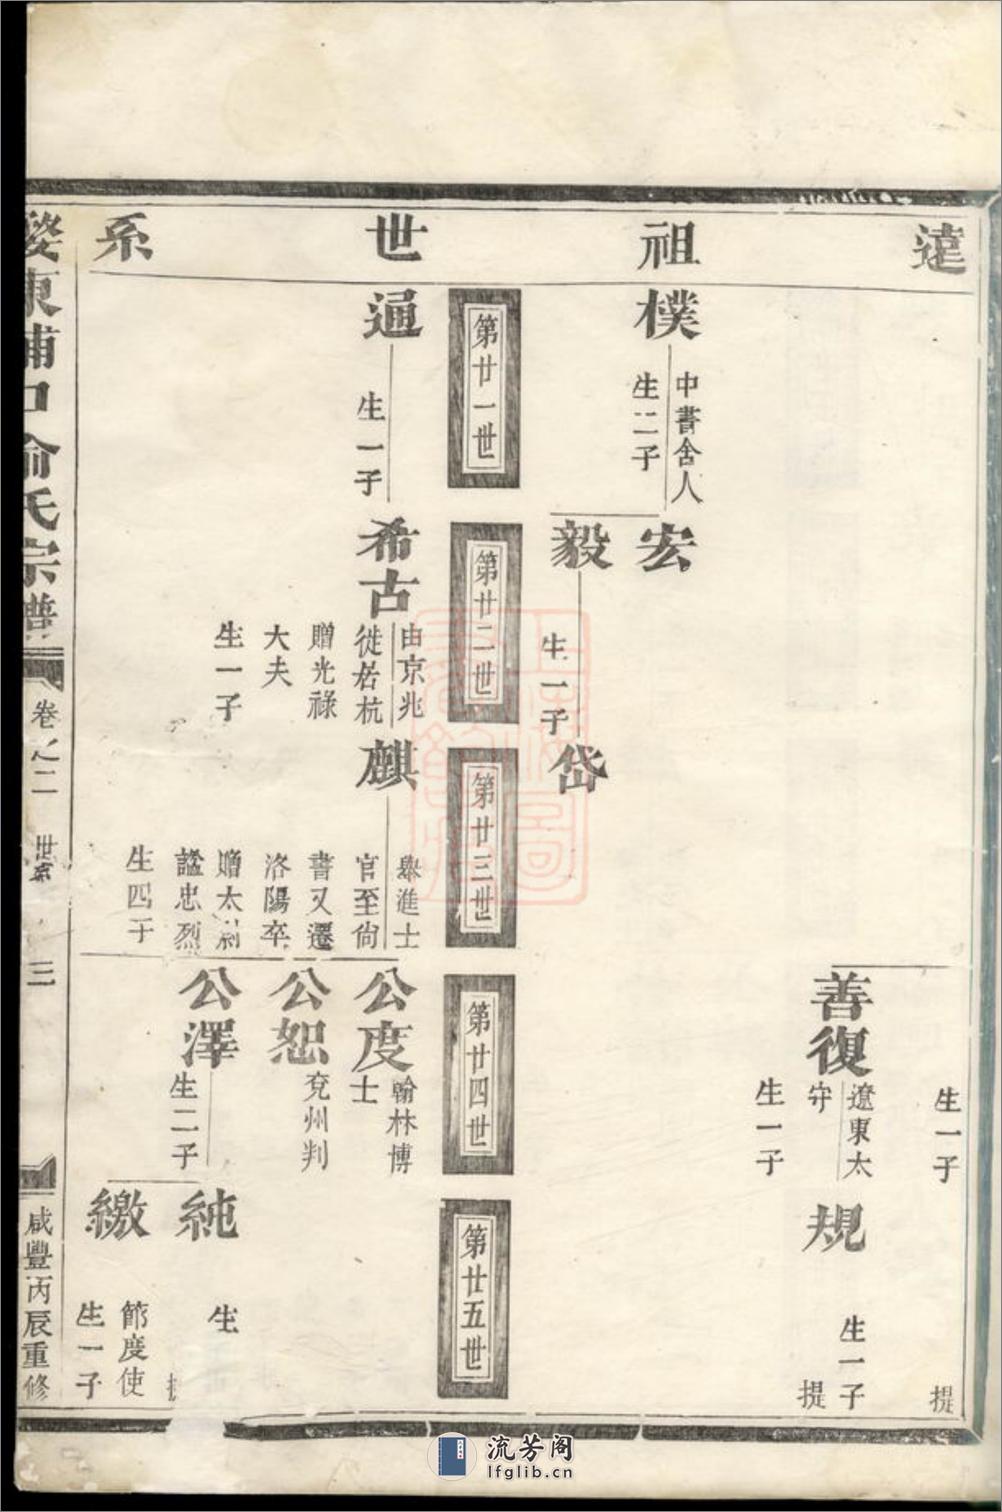 遠祖世系
樸
中書舍人
生二子
宏
毅
生一子
岱
善復
遼東太
守
生一子
規
生一子
提
生一子
提
第廿一世
第廿二世
第廿三世
第廿四世
第廿五世
通
生一子
希古
由京兆
徙居杭
贈光祿
大夫
生一子
麒
舉進士
官至尙
書又遷
洛陽卒
贈太尉
諡忠烈
生四子
公度
翰林博
士
公恕
兗州判
公澤
生二子
純
生
繳
節度使
生一子
婺東浦口俞氏宗譜
卷之二
世系
三
咸豐丙辰重修
流芳阁
lfglib.cn